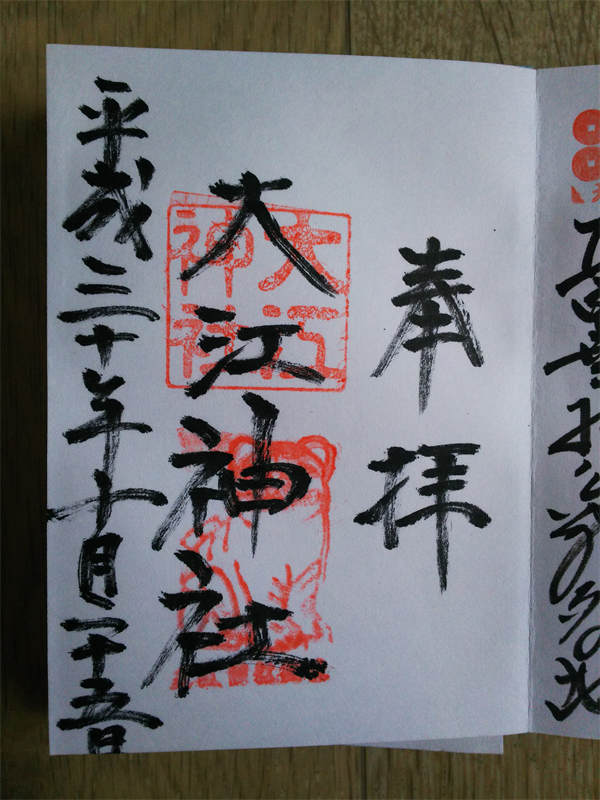 奉拝
大江神社
大江神社
平成三十年十月二十五日